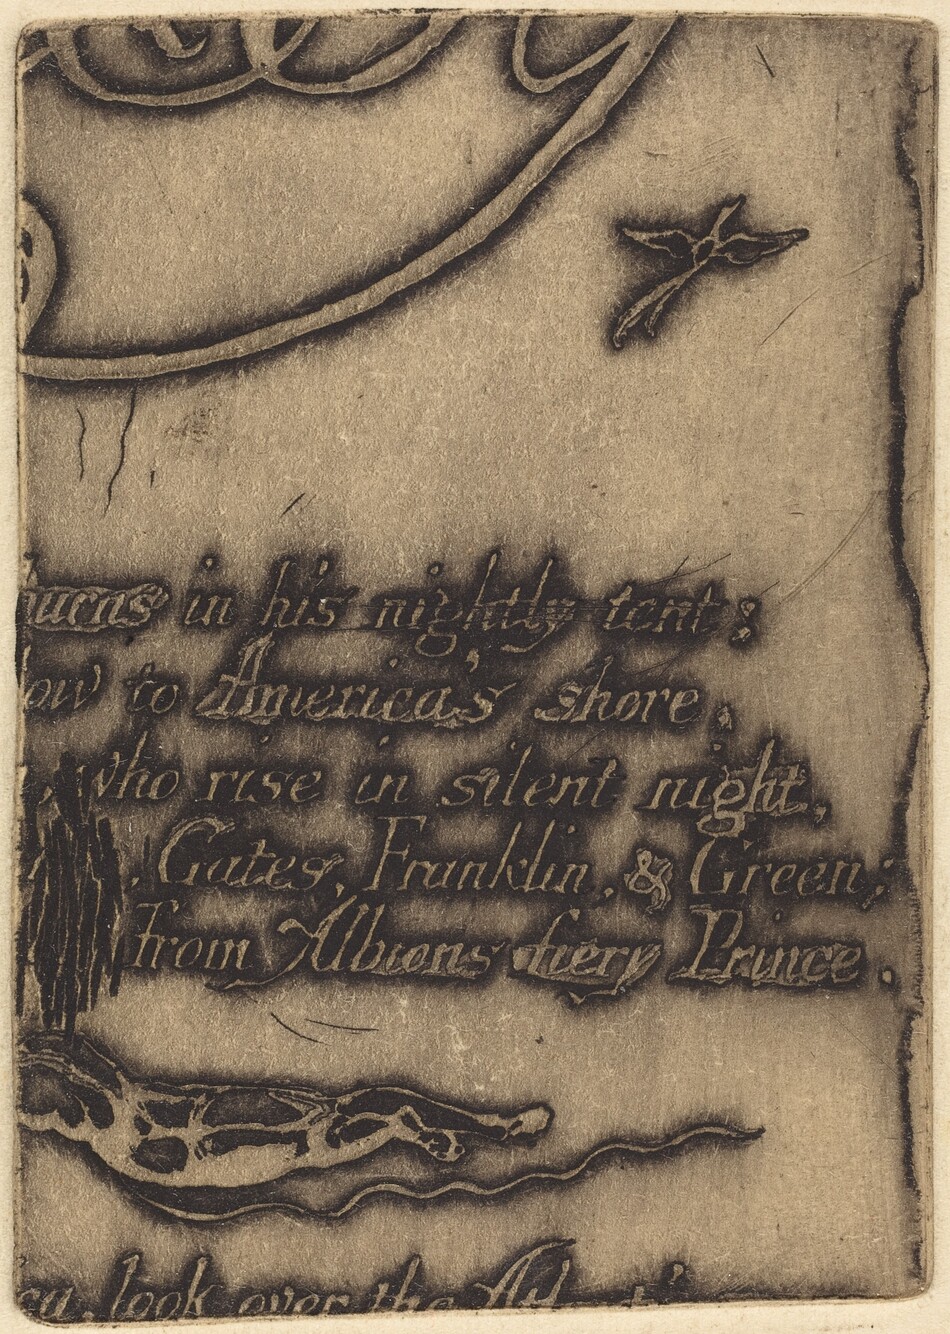 burns in his nightly tent:
low to America's shore.
, who rise in silent night,
, Gates, Franklin, & Green;
from Albions fiery Prince.
ca, look over the Atlantic